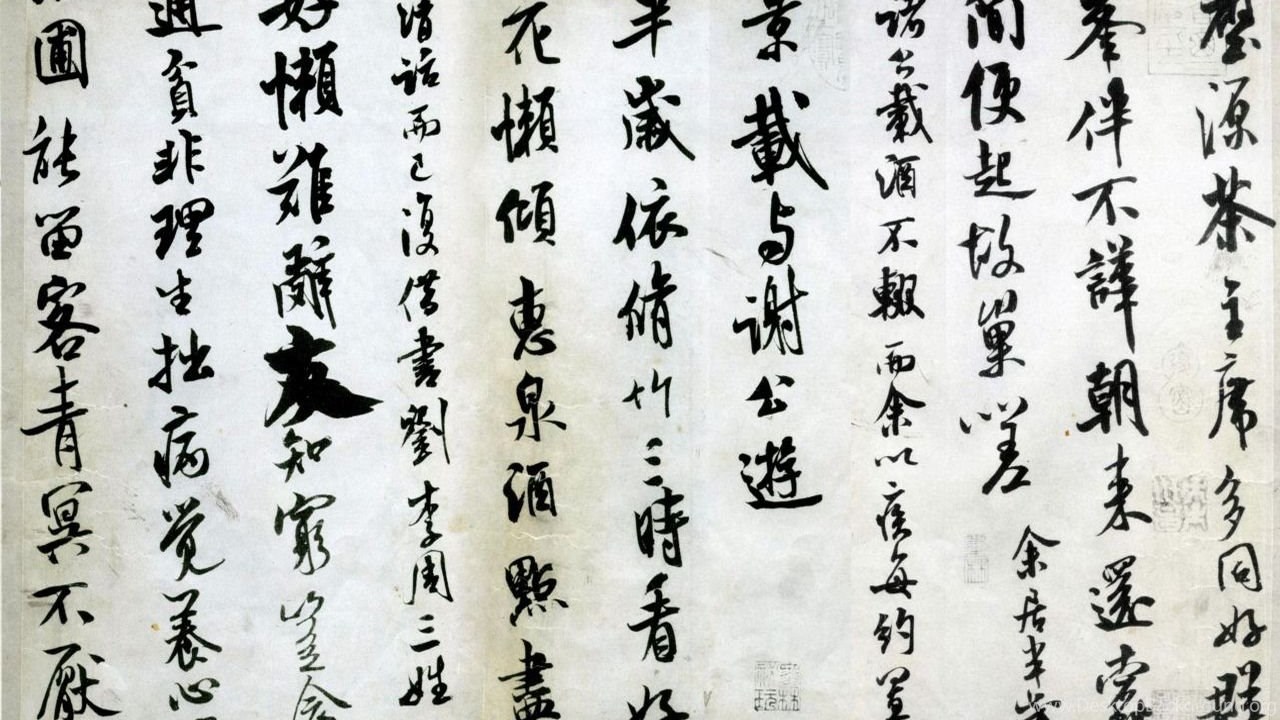 壑源茶主席多同好群
峯伴不譁朝来還蠹
簡便起故巢嗟
余居半歲
諸公載酒不輟而余以疾每約置
景載与謝公遊
半歲依脩竹三時看好
花懶傾惠泉酒點盡
清話而已復借書劉李周三姓
好懶難辭友知窮豈念
通貧非理生拙病覺養心
圃能留客青冥不厭